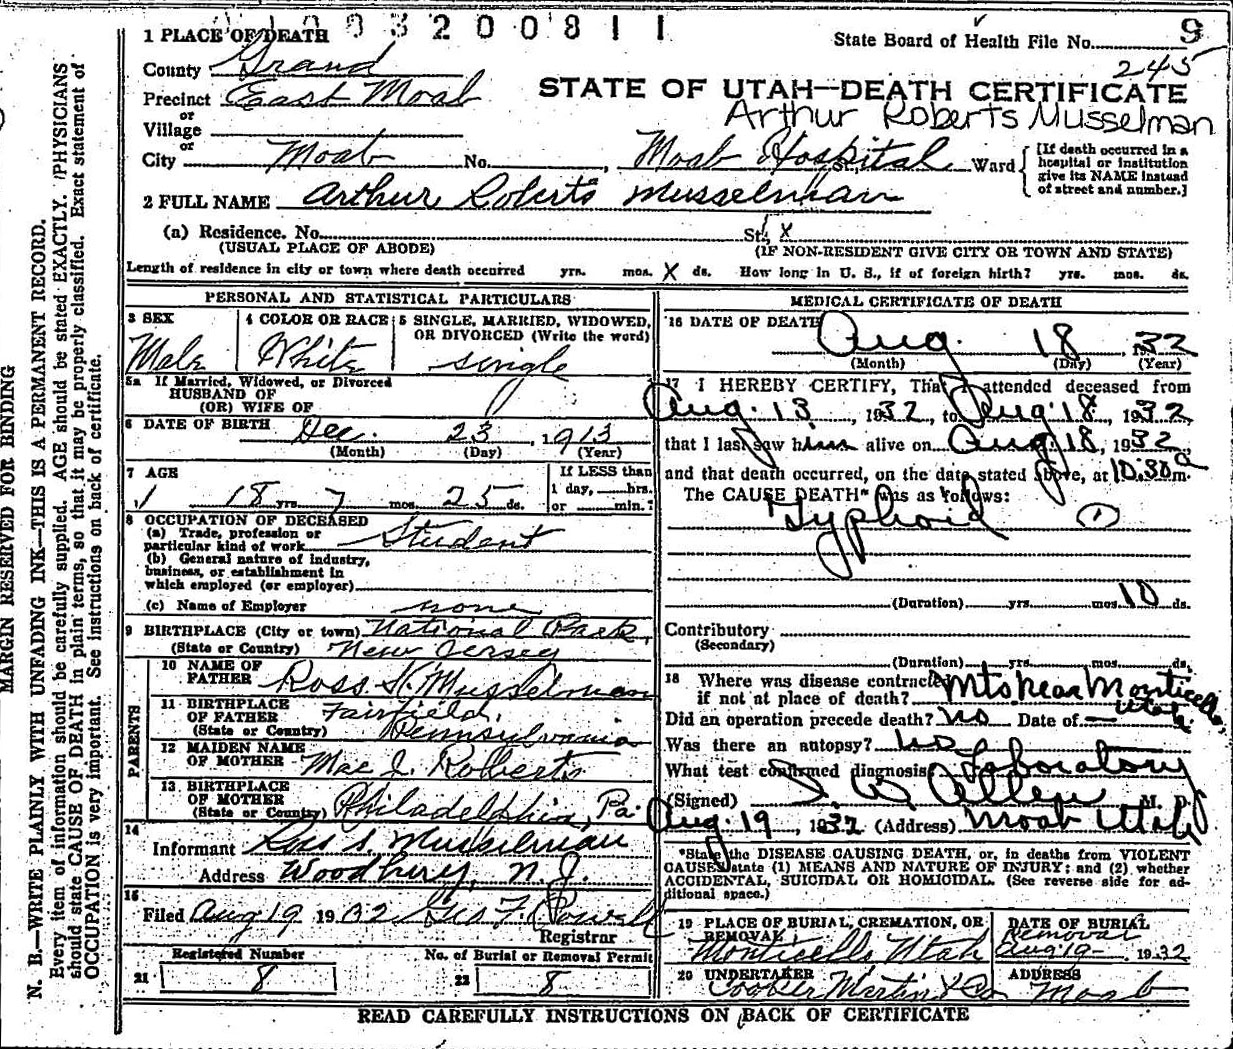 1 0 0 3 2 0 0 8 1 1
1 PLACE OF DEATH
State Board of Health File No. 9
245
County Grand
STATE OF UTAH—DEATH CERTIFICATE
Precinct East Moab
Arthur Roberts Musselman
or
Village
or
City Moab No. , Moab Hospital St. Ward
[If death occurred in a
hospital or institution
give its NAME instead
of street and number.]
2 FULL NAME Arthur Roberts Musselman
(a) Residence. No. St. x
(USUAL PLACE OF ABODE) (IF NON-RESIDENT GIVE CITY OR TOWN AND STATE)
Length of residence in city or town where death occurred yrs. mos. X ds. How long in U. S., if of foreign birth? yrs. mos. ds.
PERSONAL AND STATISTICAL PARTICULARS
3 SEX
Male
4 COLOR OR RACE
White
5 SINGLE, MARRIED, WIDOWED,
OR DIVORCED (Write the word)
single
5a If Married, Widowed, or Divorced
HUSBAND OF
(OR) WIFE OF
6 DATE OF BIRTH Dec. 23, 1913
(Month) (Day) (Year)
7 AGE
18 yrs. 7 mos. 25 ds.
If LESS than
1 day, hrs.
or min.?
8 OCCUPATION OF DECEASED
(a) Trade, profession or
particular kind of work Student
(b) General nature of industry,
business, or establishment in
which employed (or employer)
(c) Name of Employer none
9 BIRTHPLACE (City or town) National Park,
(State or Country) New Jersey
PARENTS
10 NAME OF
FATHER Ross S. Musselman
11 BIRTHPLACE
OF FATHER Fairfield,
(State or Country) Pennsylvania
12 MAIDEN NAME
OF MOTHER Mae J. Roberts
13 BIRTHPLACE
OF MOTHER
(State or Country) Philadelphia, Pa.
14
Informant Ross S. Musselman
Address Woodbury, N. J.
15
Filed Aug 19 1932 Geo F. Powell
Registrar
Registered Number
21 8
No. of Burial or Removal Permit
22 8
MEDICAL CERTIFICATE OF DEATH
16 DATE OF DEATH
Aug. 18 1932
(Month) (Day) (Year)
17 I HEREBY CERTIFY, That I attended deceased from
Aug. 13, 1932, to Aug. 18, 1932
that I last saw him alive on Aug. 18, 1932,
and that death occurred, on the date stated above, at 10:30 a m.
The CAUSE DEATH* was as follows:
Typhoid (1)
(Duration) yrs. mos. 10 ds.
Contributory
(Secondary)
(Duration) yrs. mos. ds.
18 Where was disease contracted
if not at place of death? Mts near Monticello,
Utah.
Did an operation precede death? No Date of —
Was there an autopsy? No
What test confirmed diagnosis? Laboratory
(Signed) I. W. Allen M. D.
Aug. 19, 1932 (Address) Moab Utah
*State the DISEASE CAUSING DEATH, or, in deaths from VIOLENT
CAUSES state (1) MEANS AND NATURE OF INJURY; and (2) whether
ACCIDENTAL, SUICIDAL OR HOMICIDAL. (See reverse side for ad-
ditional space.)
19 PLACE OF BURIAL, CREMATION, OR
REMOVAL
Monticello, Utah
DATE OF BURIAL
Removal
Aug 19 — 1932
20 UNDERTAKER
Cooper Martin & Co
ADDRESS
Moab
READ CAREFULLY INSTRUCTIONS ON BACK OF CERTIFICATE
MARGIN RESERVED FOR BINDING
N. B.—WRITE PLAINLY WITH UNFADING INK—THIS IS A PERMANENT RECORD.
Every item of information should be carefully supplied. AGE should be stated EXACTLY. PHYSICIANS
should state CAUSE OF DEATH in plain terms, so that it may be properly classified. Exact statement of
OCCUPATION is very important. See instructions on back of certificate.